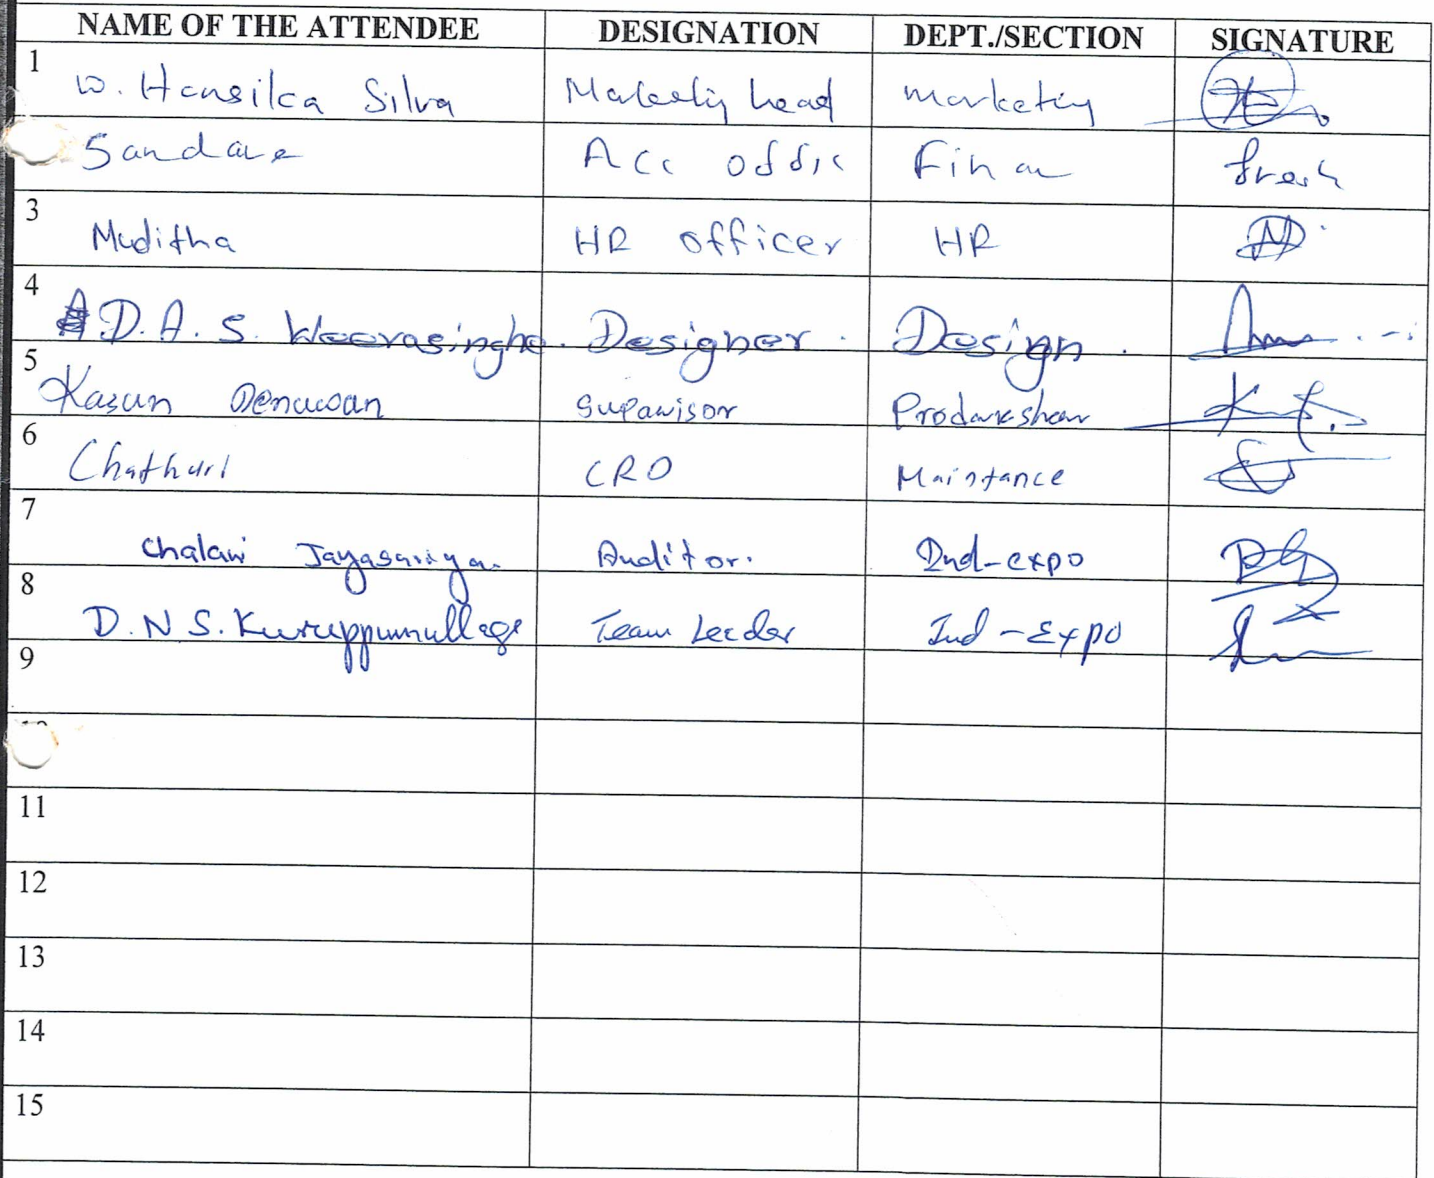 NAME OF THE ATTENDEE DESIGNATION DEPT./SECTION SIGNATURE
1 W. Hansilca Silva Marketing head marketing
Sandare Acc offic Finan
3 Muditha HR officer HR
4 D. A. S. Weerasinghe. Designer. Design.
5 Kasun Denuwan Supawisor Prodakshan
6 Chathuri CRO Maintance
7 Chalani Jayasuriya. Auditor. Ind-expo
8 D. N. S. Kuruppumullage Team Leader Ind-Expo
9
11
12
13
14
15